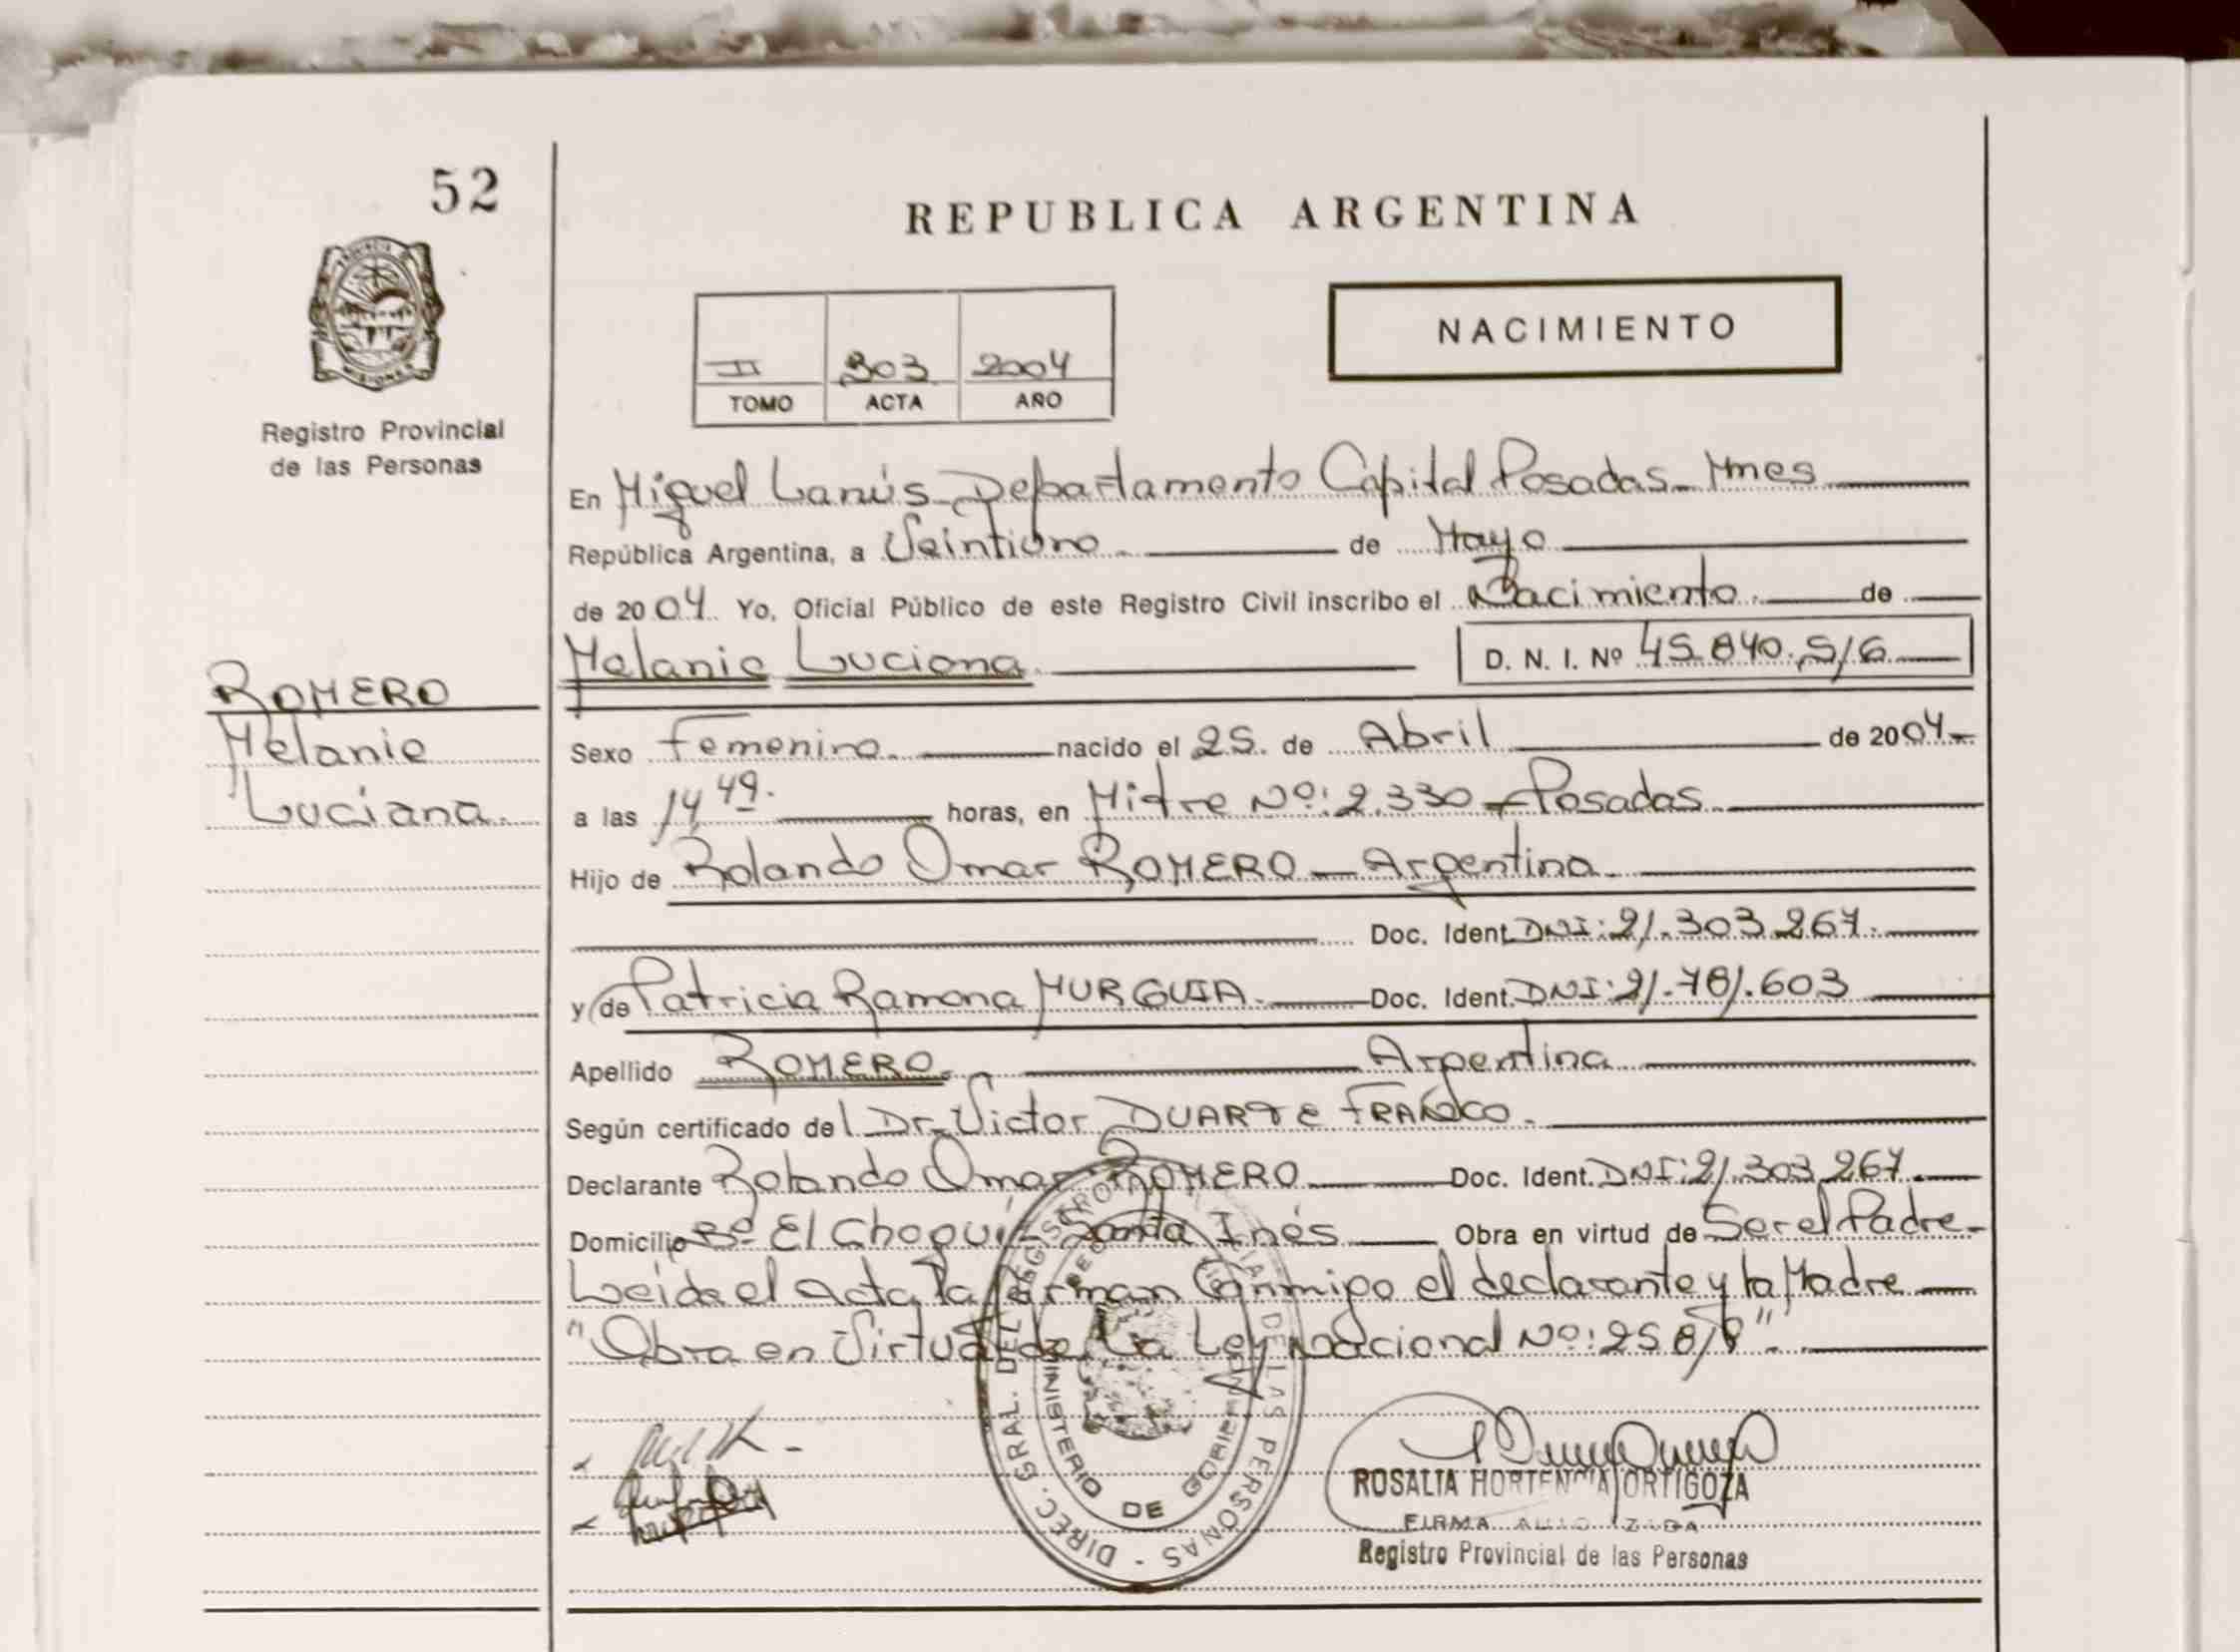 52
REPUBLICA ARGENTINA
PROVINCIA
MISIONES
Registro Provincial
de las Personas
NACIMIENTO
II 303 2004
TOMO ACTA AÑO
En Miguel Lanús - Departamento Capital Posadas - Mnes
República Argentina, a Veintiuno de Mayo
de 2004 Yo, Oficial Público de este Registro Civil inscribo el Nacimiento de
Melanie Luciana D. N. I. Nº 45.840.516
ROMERO
Melanie
Luciana.
Sexo Femenino. nacido el 25. de Abril de 2004
a las 14,49. horas, en Mitre Nº: 2.330 - Posadas
Hijo de Rolando Omar ROMERO - Argentino.
Doc. Ident. DNI: 21.303.267.
y de Patricia Ramona MURGUIA. Doc. Ident. DNI: 21.781.603
Apellido ROMERO. Argentina
Según certificado del Dr. Victor DUARTE FRANCO.
Declarante Rolando Omar ROMERO Doc. Ident. DNI: 21.303.267.
Domicilio Bº El Choquí - Santa Inés Obra en virtud de Ser el Padre -
Leída el acta la firman Conmigo el declarante y la Madre
"Obra en Virtud de La Ley Nacional Nº: 25.819".
DIREC. GRAL. DEL REGISTRO DE LAS PERSONAS
MINISTERIO DE GOBIERNO
ROSALIA HORTENCIA ORTIGOZA
FIRMA AUTORIZADA
Registro Provincial de las Personas